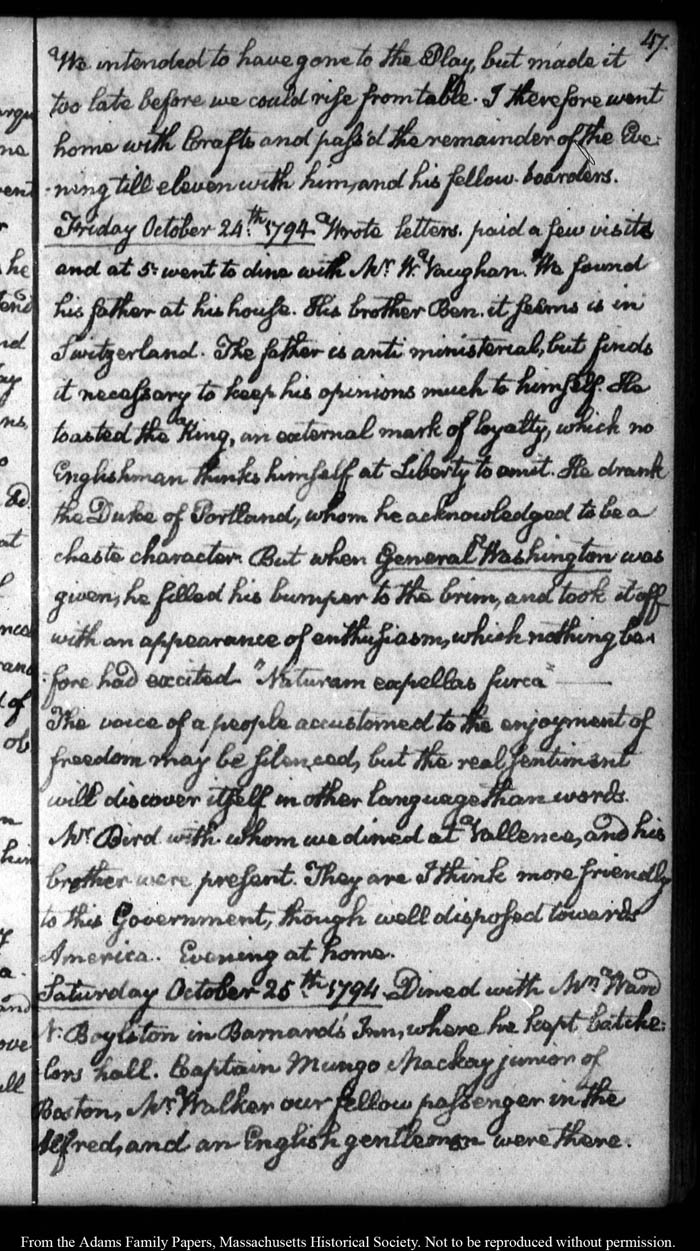 47.
We intended to have gone to the Play, but made it
too late before we could rise from table. I therefore went
home with Crafts and pass'd the remainder of the Eve:
ning till eleven with him, and his fellow boarders.
Friday October 24.th 1794. Wrote letters. paid a few visits
and at 5. went to dine with Mr. W. Vaughan. We found
his father at his house. His brother Ben. it seems is in
Switzerland. The father is anti ministerial, but finds
it necessary to keep his opinions much to himself. He
toasted the King, an external mark of loyalty, which no
Englishman thinks himself at Liberty to omit. He drank
the Duke of Portland, whom he acknowledged to be a
chaste character. But when General Washington was
given, he filled his bumper to the brim, and took it off
with an appearance of enthusiasm, which nothing be:
fore had excited. "Naturam expellas furca" —
The voice of a people accustomed to the enjoyment of
freedom may be silenced, but the real sentiment
will discover itself in other language than words.
Mr. Bird with whom we dined at Vallence, and his
brother were present. They are I think more friendly
to this Government, though well disposed towards
America. Evening at home.
Saturday October 25.th 1794. Dined with Mr. Ward
N. Boylston in Barnard's Inn, where he kept batche:
lors hall. Captain Mungo Mackay junior of
Boston, Mr. Walker our fellow passenger in the
Alfred, and an English gentleman were there.
From the Adams Family Papers, Massachusetts Historical Society. Not to be reproduced without permission.